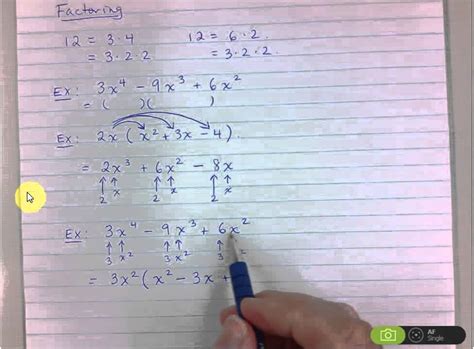 Factoring
12 = 3 · 4 12 = 6 · 2
= 3 · 2 · 2 = 3 · 2 · 2
Ex: 3x⁴ − 9x³ + 6x²
= ( )( )
Ex: 2x ( x² + 3x − 4 )
= 2x³ + 6x² − 8x
↑ ↑ ↑ ↑ ↑ ↑
2 x 2 x 2 x
Ex: 3x⁴ − 9x³ + 6x²
↑ ↑ ↑ ↑ ↑
3 x² 3 x² 3 2
= 3x² ( x² − 3x +
AF
Single